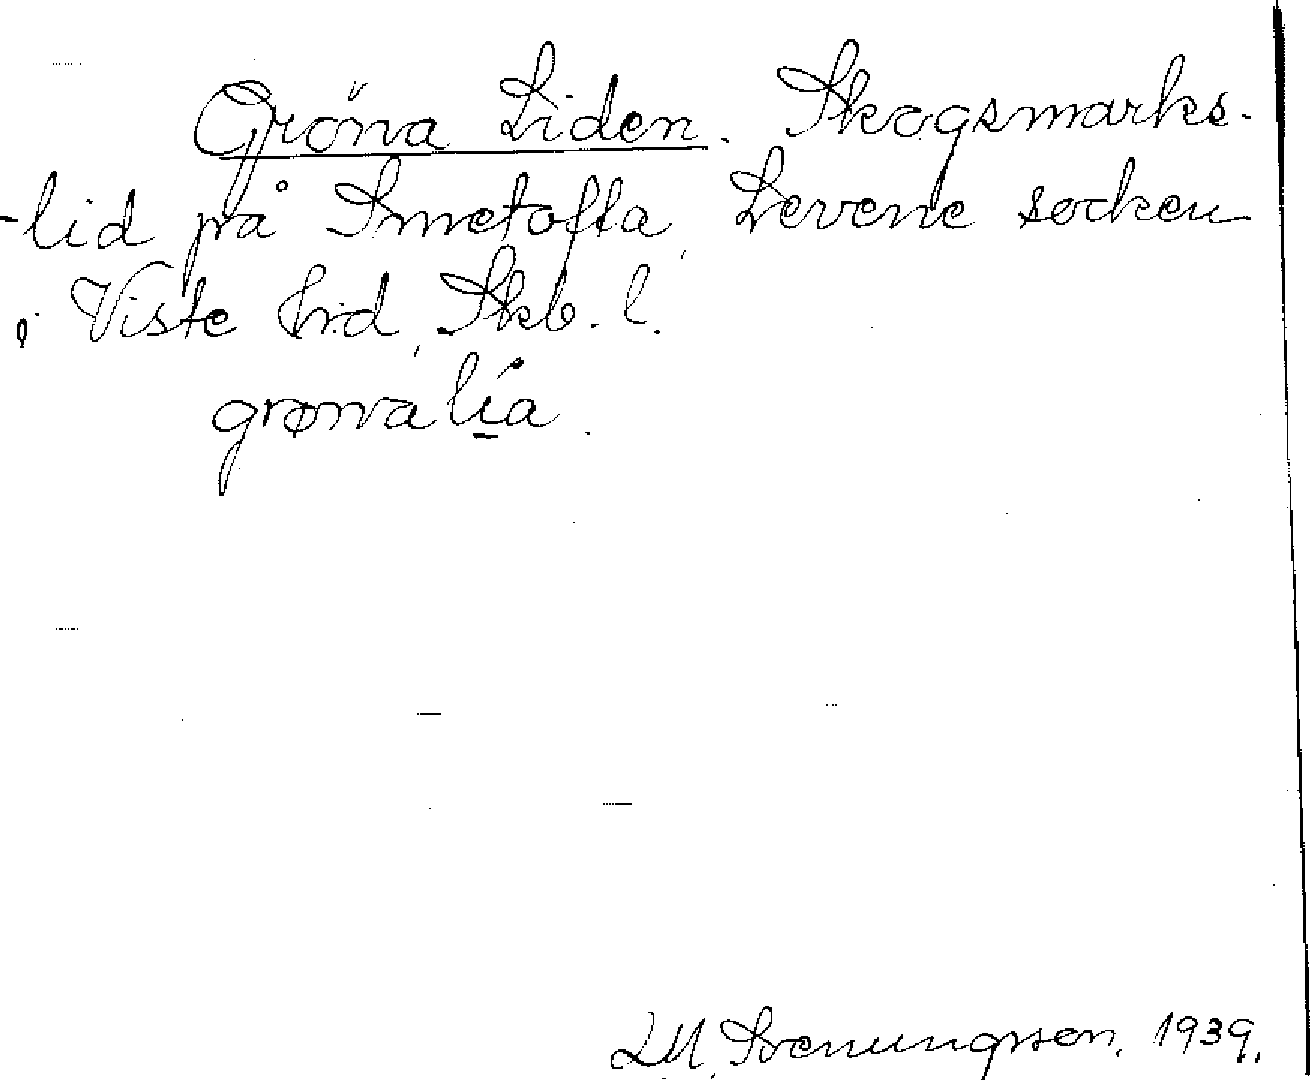 Gröna Liden. Skogsmarks-
-lid på Smetofta, Levene socken
i Viste hrd, Skb. l.
grønalia.
L.M. Svenungsson, 1939.